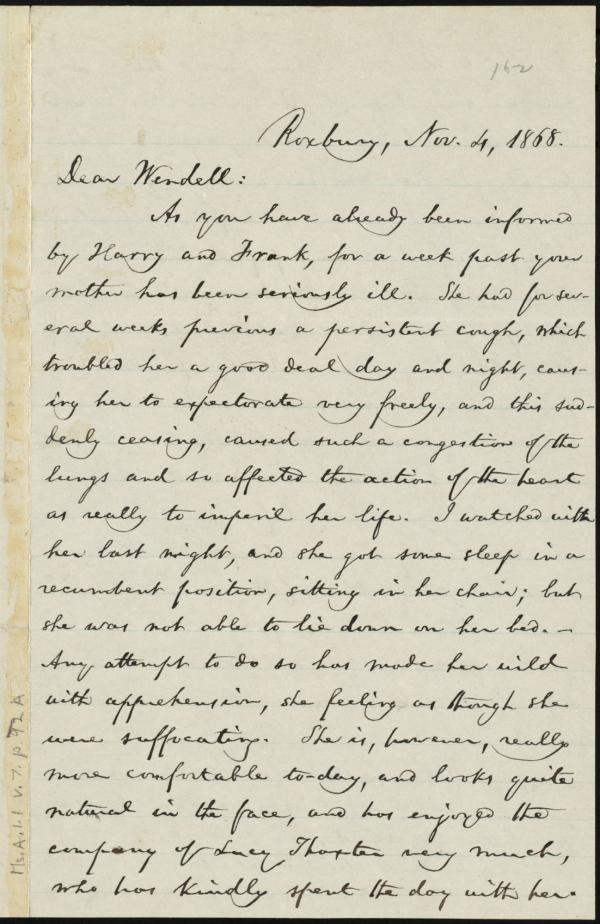 162
Roxbury, Nov. 4, 1868.
Dear Wendell:
As you have already been informed
by Harry and Frank, for a week past your
mother has been seriously ill. She had for sev-
eral weeks previous a persistent cough, which
troubled her a good deal day and night, caus-
ing her to expectorate very freely, and this sud-
denly ceasing, caused such a congestion of the
lungs and so affected the action of the heart
as really to imperil her life. I watched with
her last night, and she got some sleep in a
recumbent position, sitting in her chair; but
she was not able to lie down on her bed. –
Any attempt to do so has made her wild
with apprehension, she feeling as though she
were suffocating. She is, however, really
more comfortable to-day, and looks quite
natural in the face, and has enjoyed the
company of Lucy Thaxter very much,
who has kindly spent the day with her.
Ms.A.1.1 v.7, p.92A